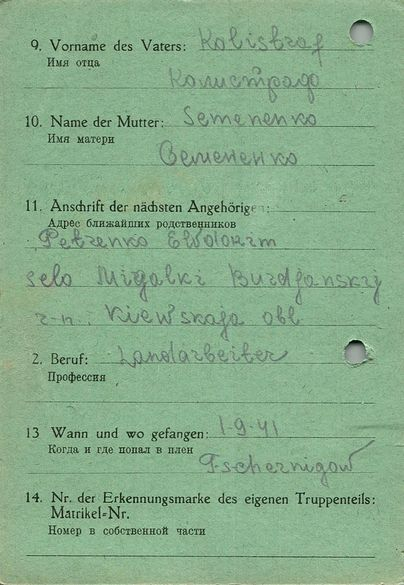 9. Vorname des Vaters: Kalistraf
Имя отца
Калистрадо
10. Name der Mutter: Semenenko
Имя матери
Семененко
11. Anschrift der nächsten Angehörigen:
Адрес ближайших родственников
Petrenko Ewdokim
selo Migalki Burdjanskij
r-n. Kiewskaja obl
2. Beruf: Landarbeiter
Профессия
13 Wann und wo gefangen: 1-9-41
Когда и где попал в плен
Tschernigow
14. Nr. der Erkennungsmarke des eigenen Truppenteils:
Matrikel-Nr.
Номер в собственной части